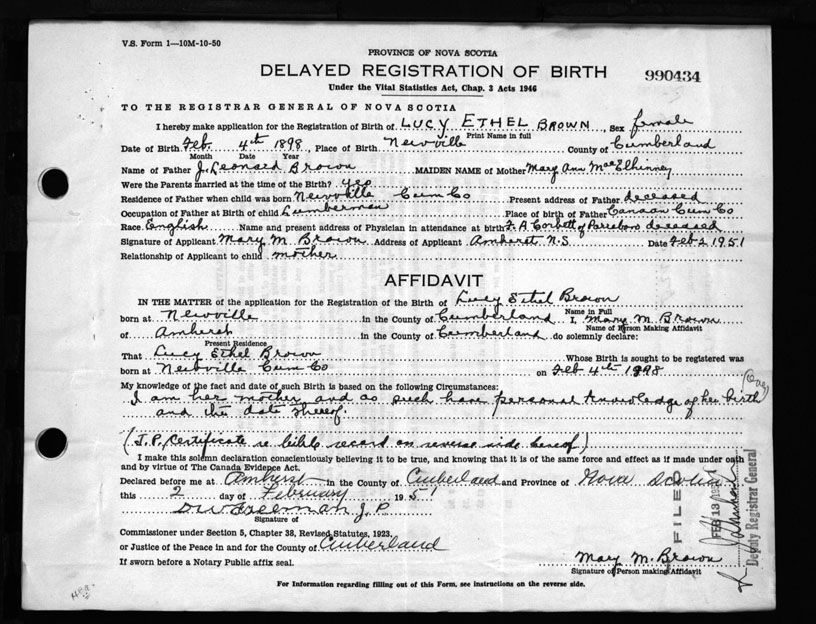 V.S. Form 1—10M-10-50
PROVINCE OF NOVA SCOTIA
DELAYED REGISTRATION OF BIRTH
990434
Under the Vital Statistics Act, Chap. 3 Acts 1946
TO THE REGISTRAR GENERAL OF NOVA SCOTIA
I hereby make application for the Registration of Birth of LUCY ETHEL BROWN, Sex female
Print Name in full
Date of Birth Feb. 4th 1898, Place of Birth Newville County of Cumberland
Month Date Year
Name of Father J. Leonard Brown MAIDEN NAME of Mother Mary Ann MacElhinney
Were the Parents married at the time of the Birth? yes
Residence of Father when child was born Newville Cum Co Present address of Father deceased
Occupation of Father at Birth of child Lumberman Place of birth of Father Canaan Cum Co
Race English Name and present address of Physician in attendance at birth F. A. Corbett of Parrsboro deceased
Signature of Applicant Mary M. Brown Address of Applicant Amherst N.S. Date Feb 2 1951
Relationship of Applicant to child mother
AFFIDAVIT
IN THE MATTER of the application for the Registration of the Birth of Lucy Ethel Brown
Name in Full
born at Newville in the County of Cumberland I, Mary M. Brown
Name of Person Making Affidavit
of Amherst in the County of Cumberland do solemnly declare:
Present Residence
That Lucy Ethel Brown Whose Birth is sought to be registered was
born at Newville Cum Co on Feb 4th 1898
(Over)
My knowledge of the fact and date of such Birth is based on the following Circumstances:
I am her mother and as such have personal knowledge of her birth
and the date thereof.
(J.P. Certificate re bible record on reverse side hereof)
I make this solemn declaration conscientiously believing it to be true, and knowing that it is of the same force and effect as if made under oath
and by virtue of The Canada Evidence Act.
Declared before me at Amherst in the County of Cumberland and Province of Nova Scotia
this 2 day of February 1951
D W Freeman J.P
Signature of
Commissioner under Section 5, Chapter 38, Revised Statutes, 1923,
or Justice of the Peace in and for the County of Cumberland
If sworn before a Notary Public affix seal.
Mary M. Brown
Signature of Person making Affidavit
FILED
FEB 13 1951
Deputy Registrar General
For Information regarding filling out of this Form, see instructions on the reverse side.